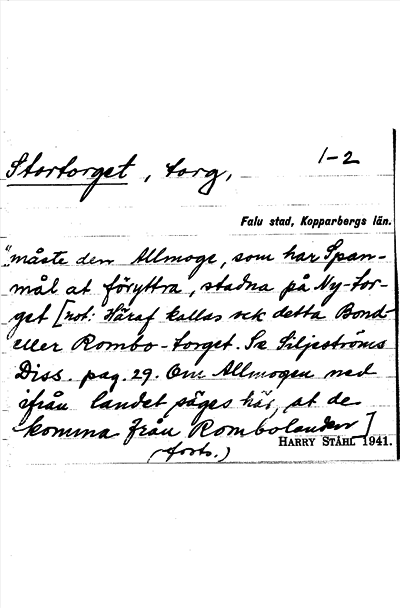 Stortorget, torg, 1-2
Falu stad, Kopparbergs län.
"måste den Allmoge, som har Span-
mål at föryttra, stadna på Ny-tor-
get [not: Häraf kallas ock detta Bond-
eller Rombo-torget. Se Siljeströms
Diss. pag. 29. Om Allmogen ned
ifrån landet säges här, at de
komma från Rombolanden]
HARRY STÅHL 1941.
(forts.)